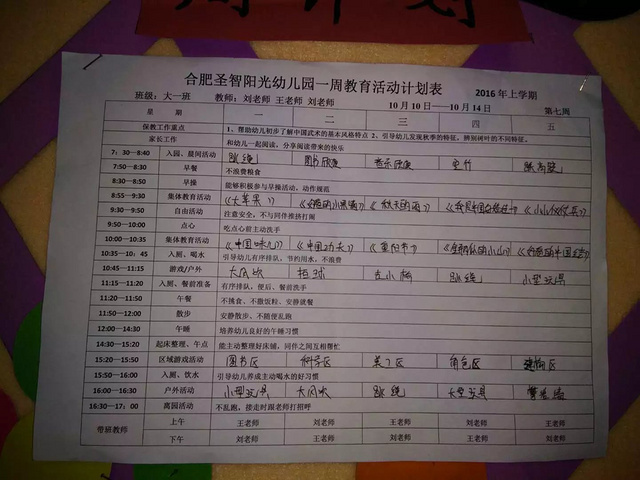 周计划
合肥圣智阳光幼儿园一周教育活动计划表 2016年上学期
班级：大一班 教师：刘老师 王老师 刘老师 10月10日——10月14日 第七周
星期 一 二 三 四 五
保教工作重点 1、帮助幼儿初步了解中国武术的基本风格特点 2、引导幼儿发现秋季的特征，辨别树叶的不同特征。
家长工作 和幼儿一起阅读，分享阅读带来的快乐
7：30—8:40 入园、晨间活动 跳绳 图书欣赏 音乐欣赏
7:50-8:30 早餐 不浪费粮食
8:30-8:50 早操 能够积极参与早操活动，动作规范
8:55—9:30 集体教育活动 《大苹果》 《秋天的雨》 《小小仪仗兵》
9:30—9:50 自由活动 注意安全，不与同伴推挤打闹
9:50—10:00 点心 吃点心前主动洗手
10:00—10:35 集体教育活动 《中国功夫》 《重阳节》
10:35—10：45 入厕、喝水 引导幼儿有序排队，节约用水，不浪费
10:45—11:15 游戏/户外 大风吹 拍球 跳绳 小型玩具
11:15—11:20 入厕、餐前准备 有序排队，便后、餐前洗手
11:20—11:50 午餐 不挑食、不撒饭粒、安静就餐
11:50—12:00 散步 安静散步、不随便乱跑
12:00—14:30 午睡 培养幼儿良好的午睡习惯
14:30—15:20 起床整理、午点 能主动整理好床铺，同伴之间互相帮忙
15:20—15:50 区域游戏活动 图书区 科学区 美工区 角色区 建构区
15:50—16:00 入厕，饮水 引导幼儿养成主动喝水的好习惯
16:00—16:30 户外活动 小型玩具 大风吹 跳绳 大型玩具
16:30—17：00 离园活动 不乱跑，接走时跟老师打招呼
带班教师 上午 王老师 刘老师 王老师 刘老师 王老师
下午 刘老师 王老师 刘老师 王老师 刘老师